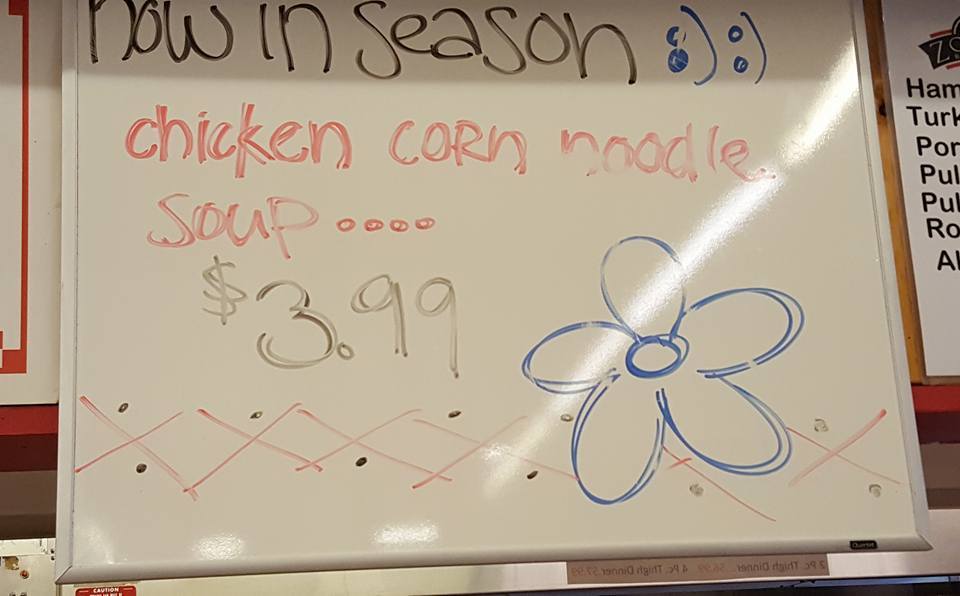 now in season :) :)
chicken corn noodle
soup....
$3.99
Ham
Turk
Por
Pul
Pul
Ro
Al
Quartet
CAUTION
2 Pc. Thigh Dinner... $6.99 4 Pc. Thigh Dinner $7.99